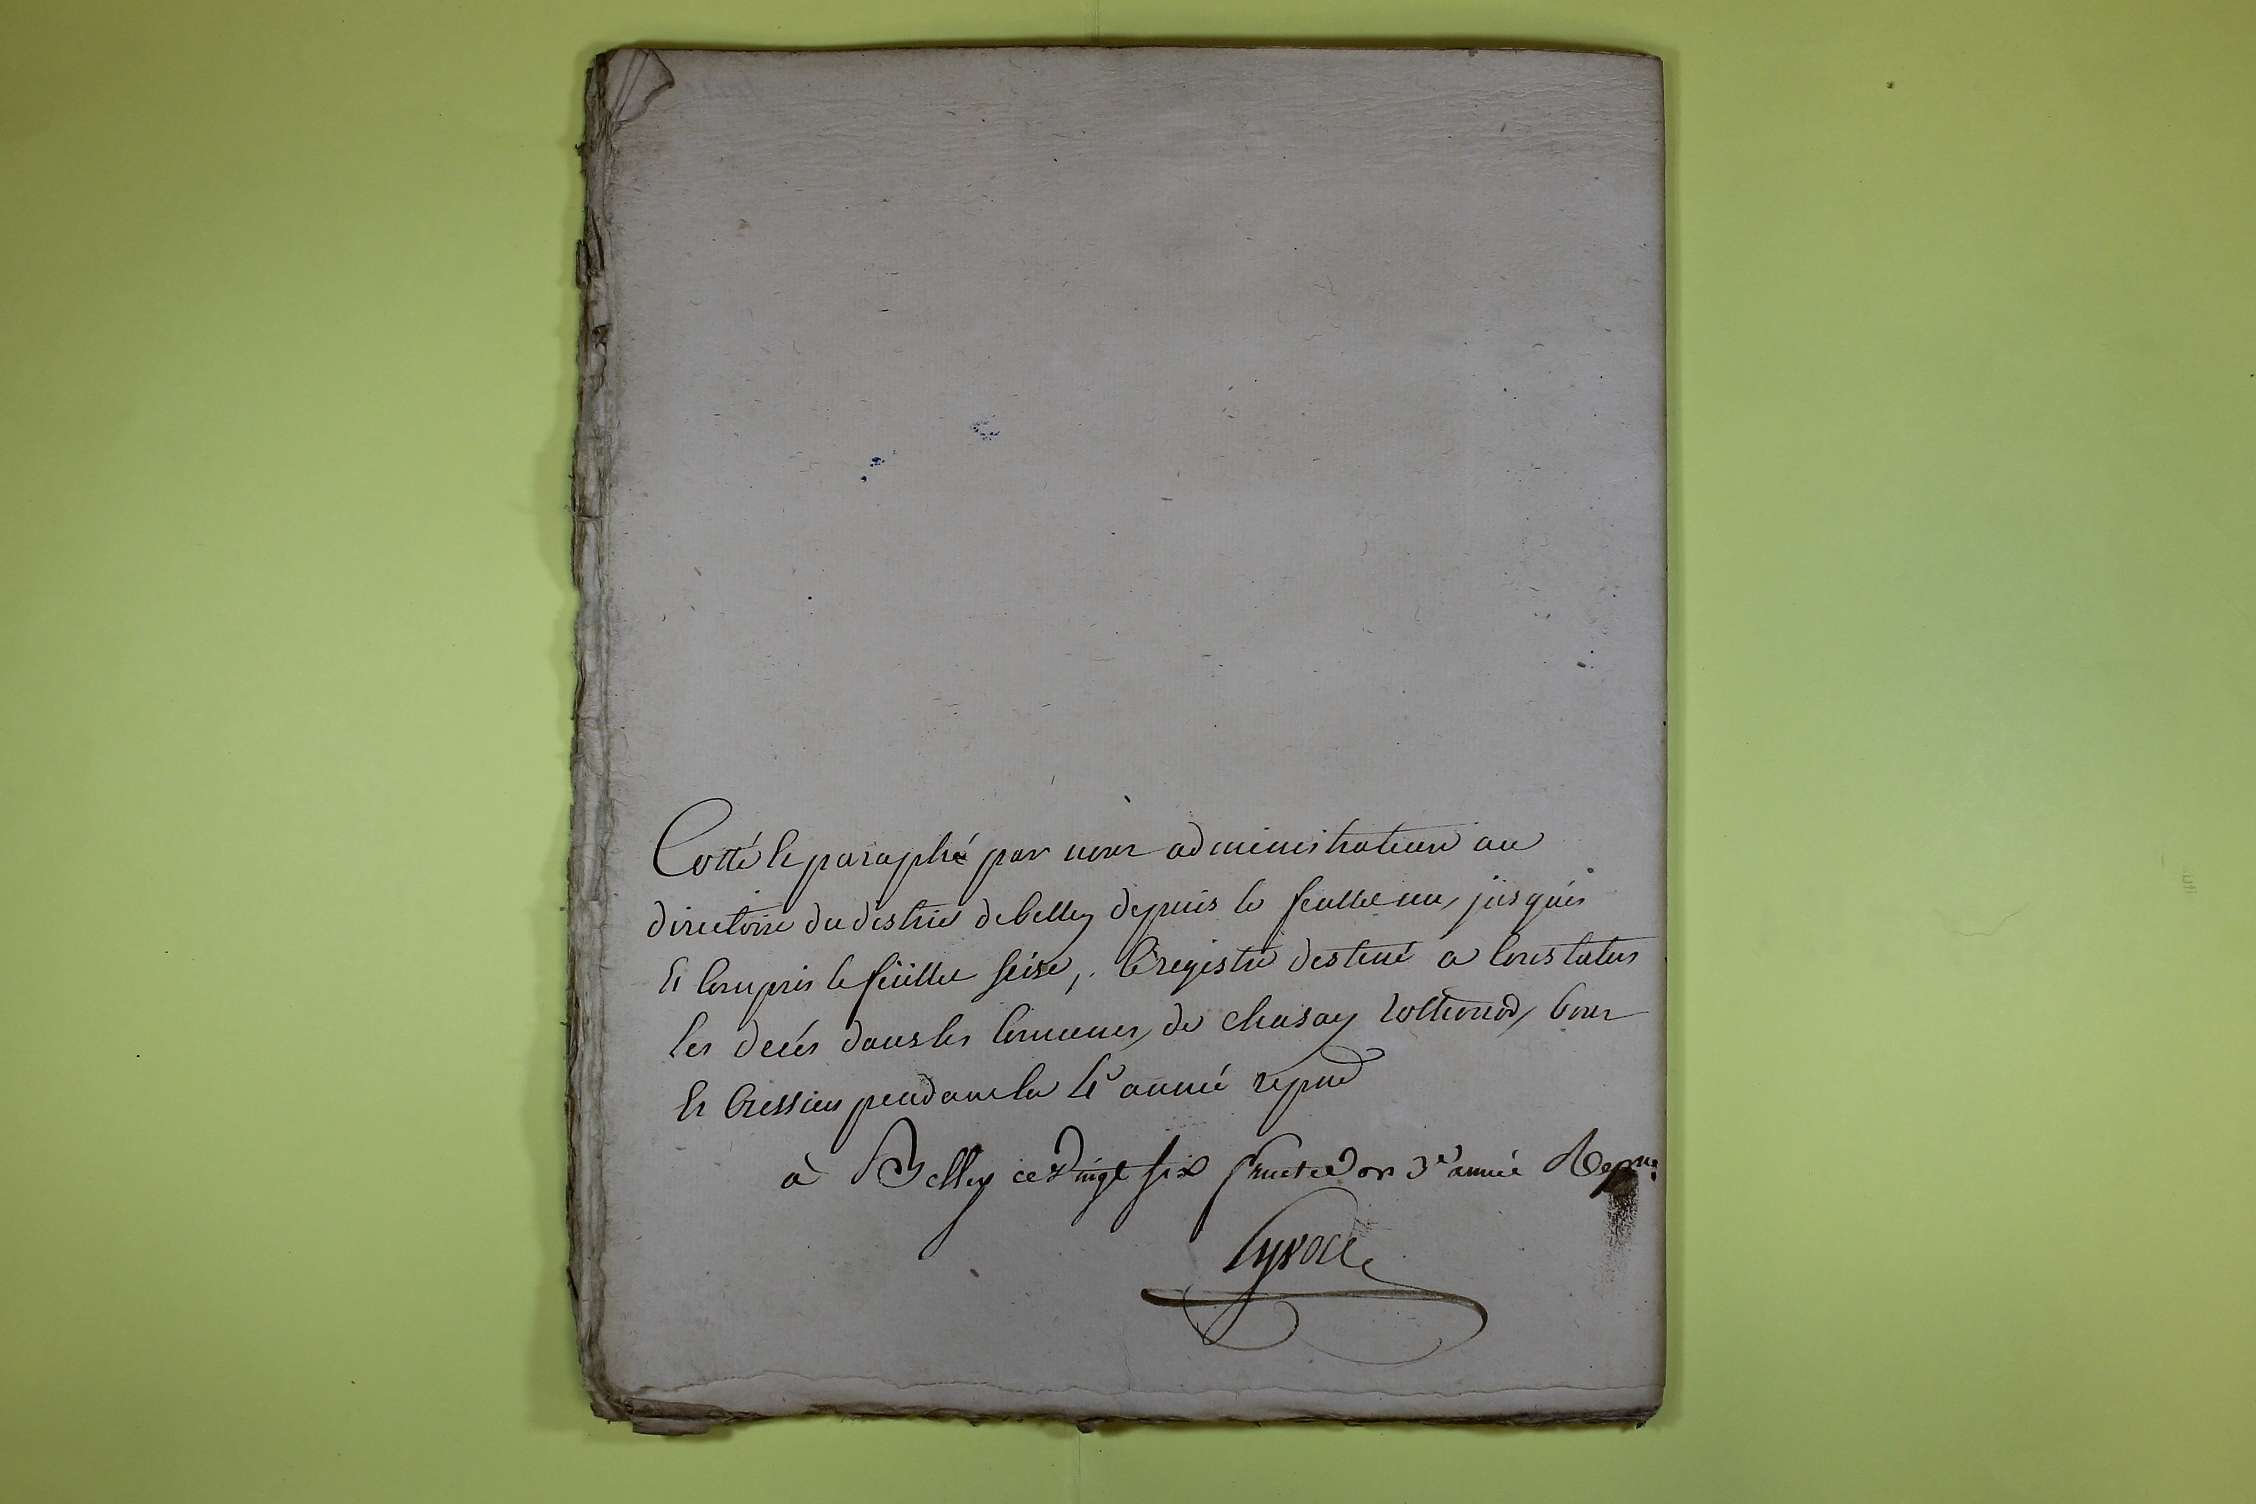 Cotté et paraphé par nous administrateur au
directoire du district de belley depuis le feullet un, jusques
Et Compris le feüillet seise, le registre destiné a Constater
les decés dans les Communes, de chasay Rothonod, bons
Et Cressieu pendant la 4e année repue
à Belley ce vingt six fructidor 3e année Repue